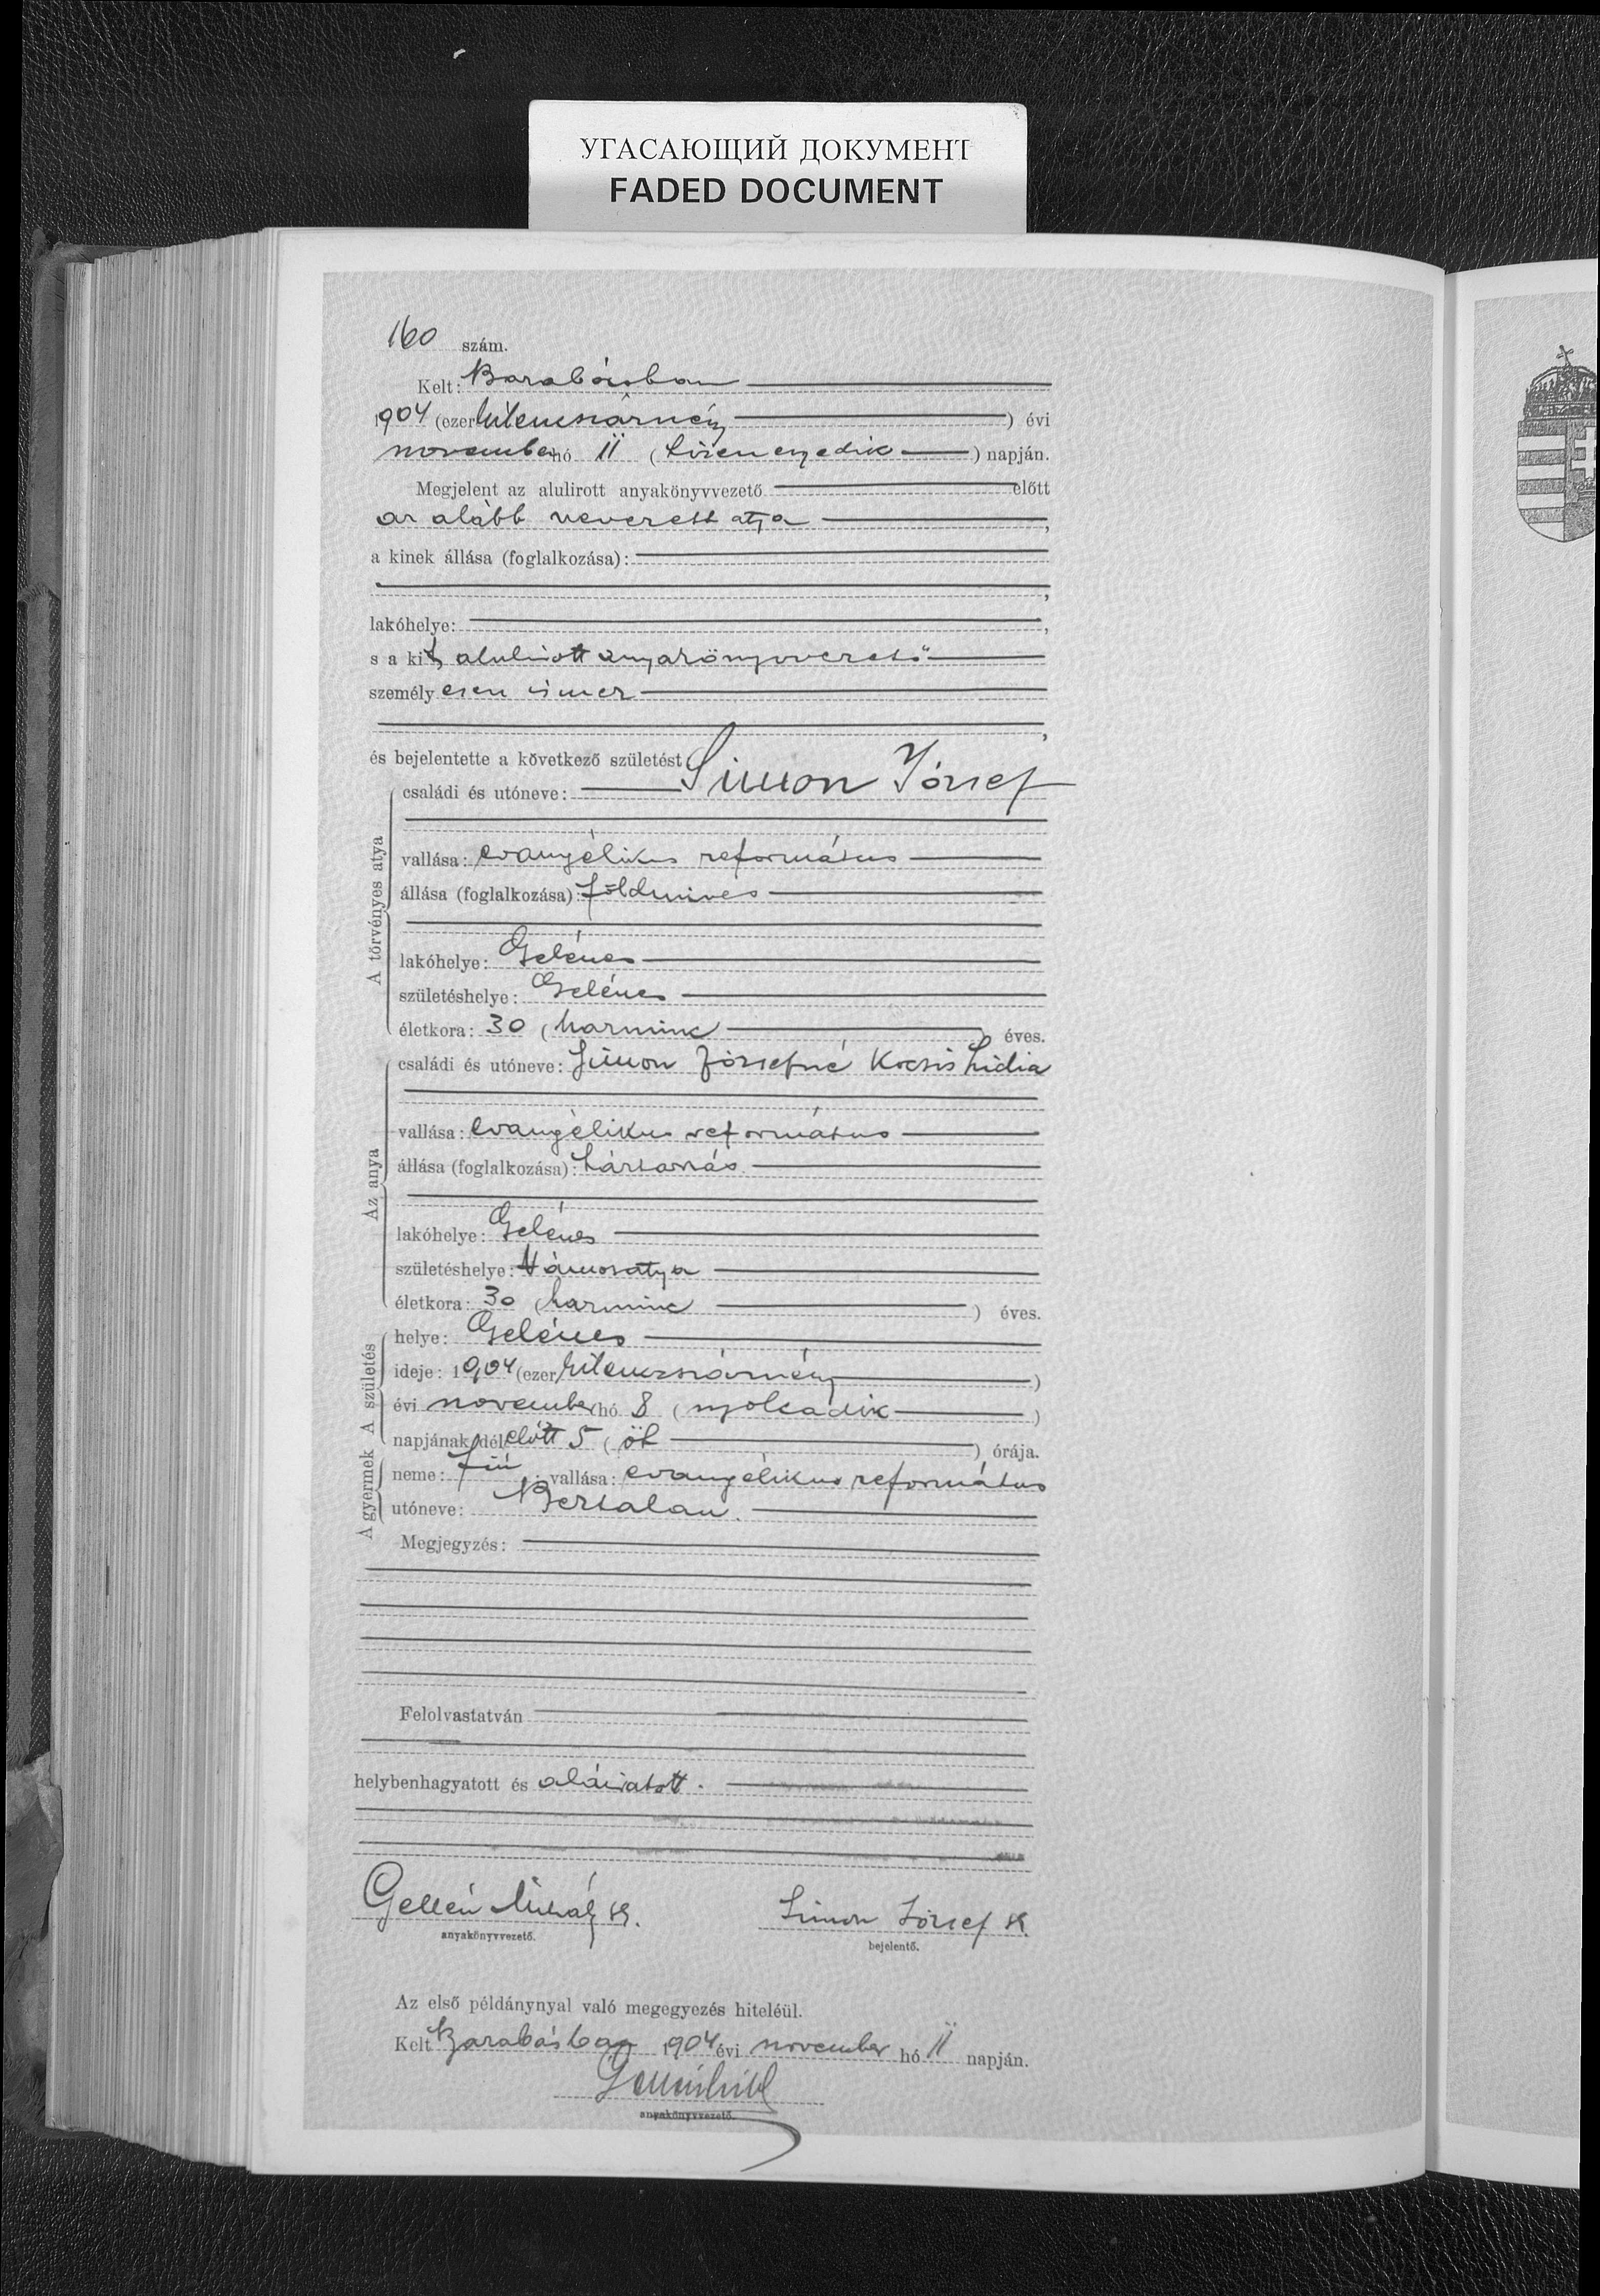 УГАСАЮЩИЙ ДОКУМЕНТ
FADED DOCUMENT
160 szám.
Kelt: Barabásban
1904 (ezer kilencszáznégy) évi
november hó 11 (tizenegyedik) napján.
Megjelent az alulirott anyakönyvvezető előtt
az alább nevezett atya,
a kinek állása (foglalkozása):
,
lakóhelye: ,
s a kit alulirott anyakönyvvezető
személyesen ismer
,
és bejelentette a következő születést
A törvényes atya
családi és utóneve: Simon József
vallása: evangélikus református
állása (foglalkozása): földmives
lakóhelye: Gelénes
születéshelye: Gelénes
életkora: 30 (harminc) éves.
Az anya
családi és utóneve: Simon Józsefné Kocsis Lidia
vallása: evangélikus református
állása (foglalkozása): háztartás
lakóhelye: Gelénes
születéshelye: Vámosatya
életkora: 30 (harminc) éves.
A születés
helye: Gelénes
ideje: 1904 (ezer kilencszáznégy)
évi november hó 8 (nyolcadik)
napjának délelőtt 5 (öt) órája.
A gyermek
neme: fiú vallása: evangélikus református
utóneve: Bertalan.
Megjegyzés:
Felolvastatván
helybenhagyatott és aláiratott.
Gellén Mihály sk. Simon József sk
anyakönyvvezető. bejelentő.
Az első példánynyal való megegyezés hiteléül.
Kelt Barabásban 1904 évi november hó 11 napján.
anyakönyvvezető.